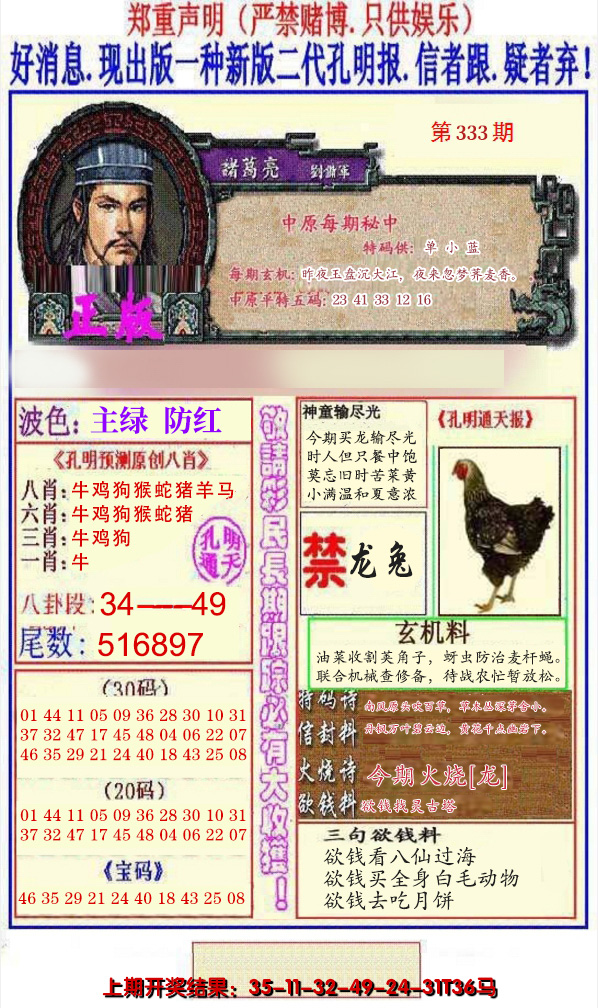 郑重声明（严禁赌博.只供娱乐）
好消息.现出版一种新版二代孔明报.信者跟.疑者弃！
第333期
諸葛亮 劉備軍
中原每期秘中
特码供：单小蓝
每期玄机：昨夜玉盘沉大江，夜来忽梦荞麦香。
中原平特五码：23 41 33 12 16
正版
波色：主绿 防红
《孔明预测原创八肖》
八肖：牛鸡狗猴蛇猪羊马
六肖：牛鸡狗猴蛇猪
三肖：牛鸡狗
一肖：牛
孔明通天
八卦段：34——49
尾数：516897
（30码）
01 44 11 05 09 36 28 30 10 31
37 32 47 17 45 48 04 06 22 07
46 35 29 21 24 40 18 43 25 08
（20码）
01 44 11 05 09 36 28 30 10 31
37 32 47 17 45 48 04 06 22 07
《宝码》
46 35 29 21 24 40 18 43 25 08
敬請彩民長期跟踪必有大收獲！
神童输尽光
今期买龙输尽光
时人但只餐中饱
莫忘旧时苦菜黄
小满温和夏意浓
《孔明通天报》
禁 龙兔
玄机料
油菜收割荚角子，蚜虫防治麦杆蝇。
联合机械查修备，待战农忙暂放松。
特码诗 南风原头吹百草，草木丛深茅舍小。
信封料 丹枫万叶碧云边，黄花千点幽岩下。
火烧诗 今期火烧[龙]
欲钱料 欲钱找灵古塔
三句欲钱料
欲钱看八仙过海
欲钱买全身白毛动物
欲钱去吃月饼
上期开奖结果：35-11-32-49-24-31T36马